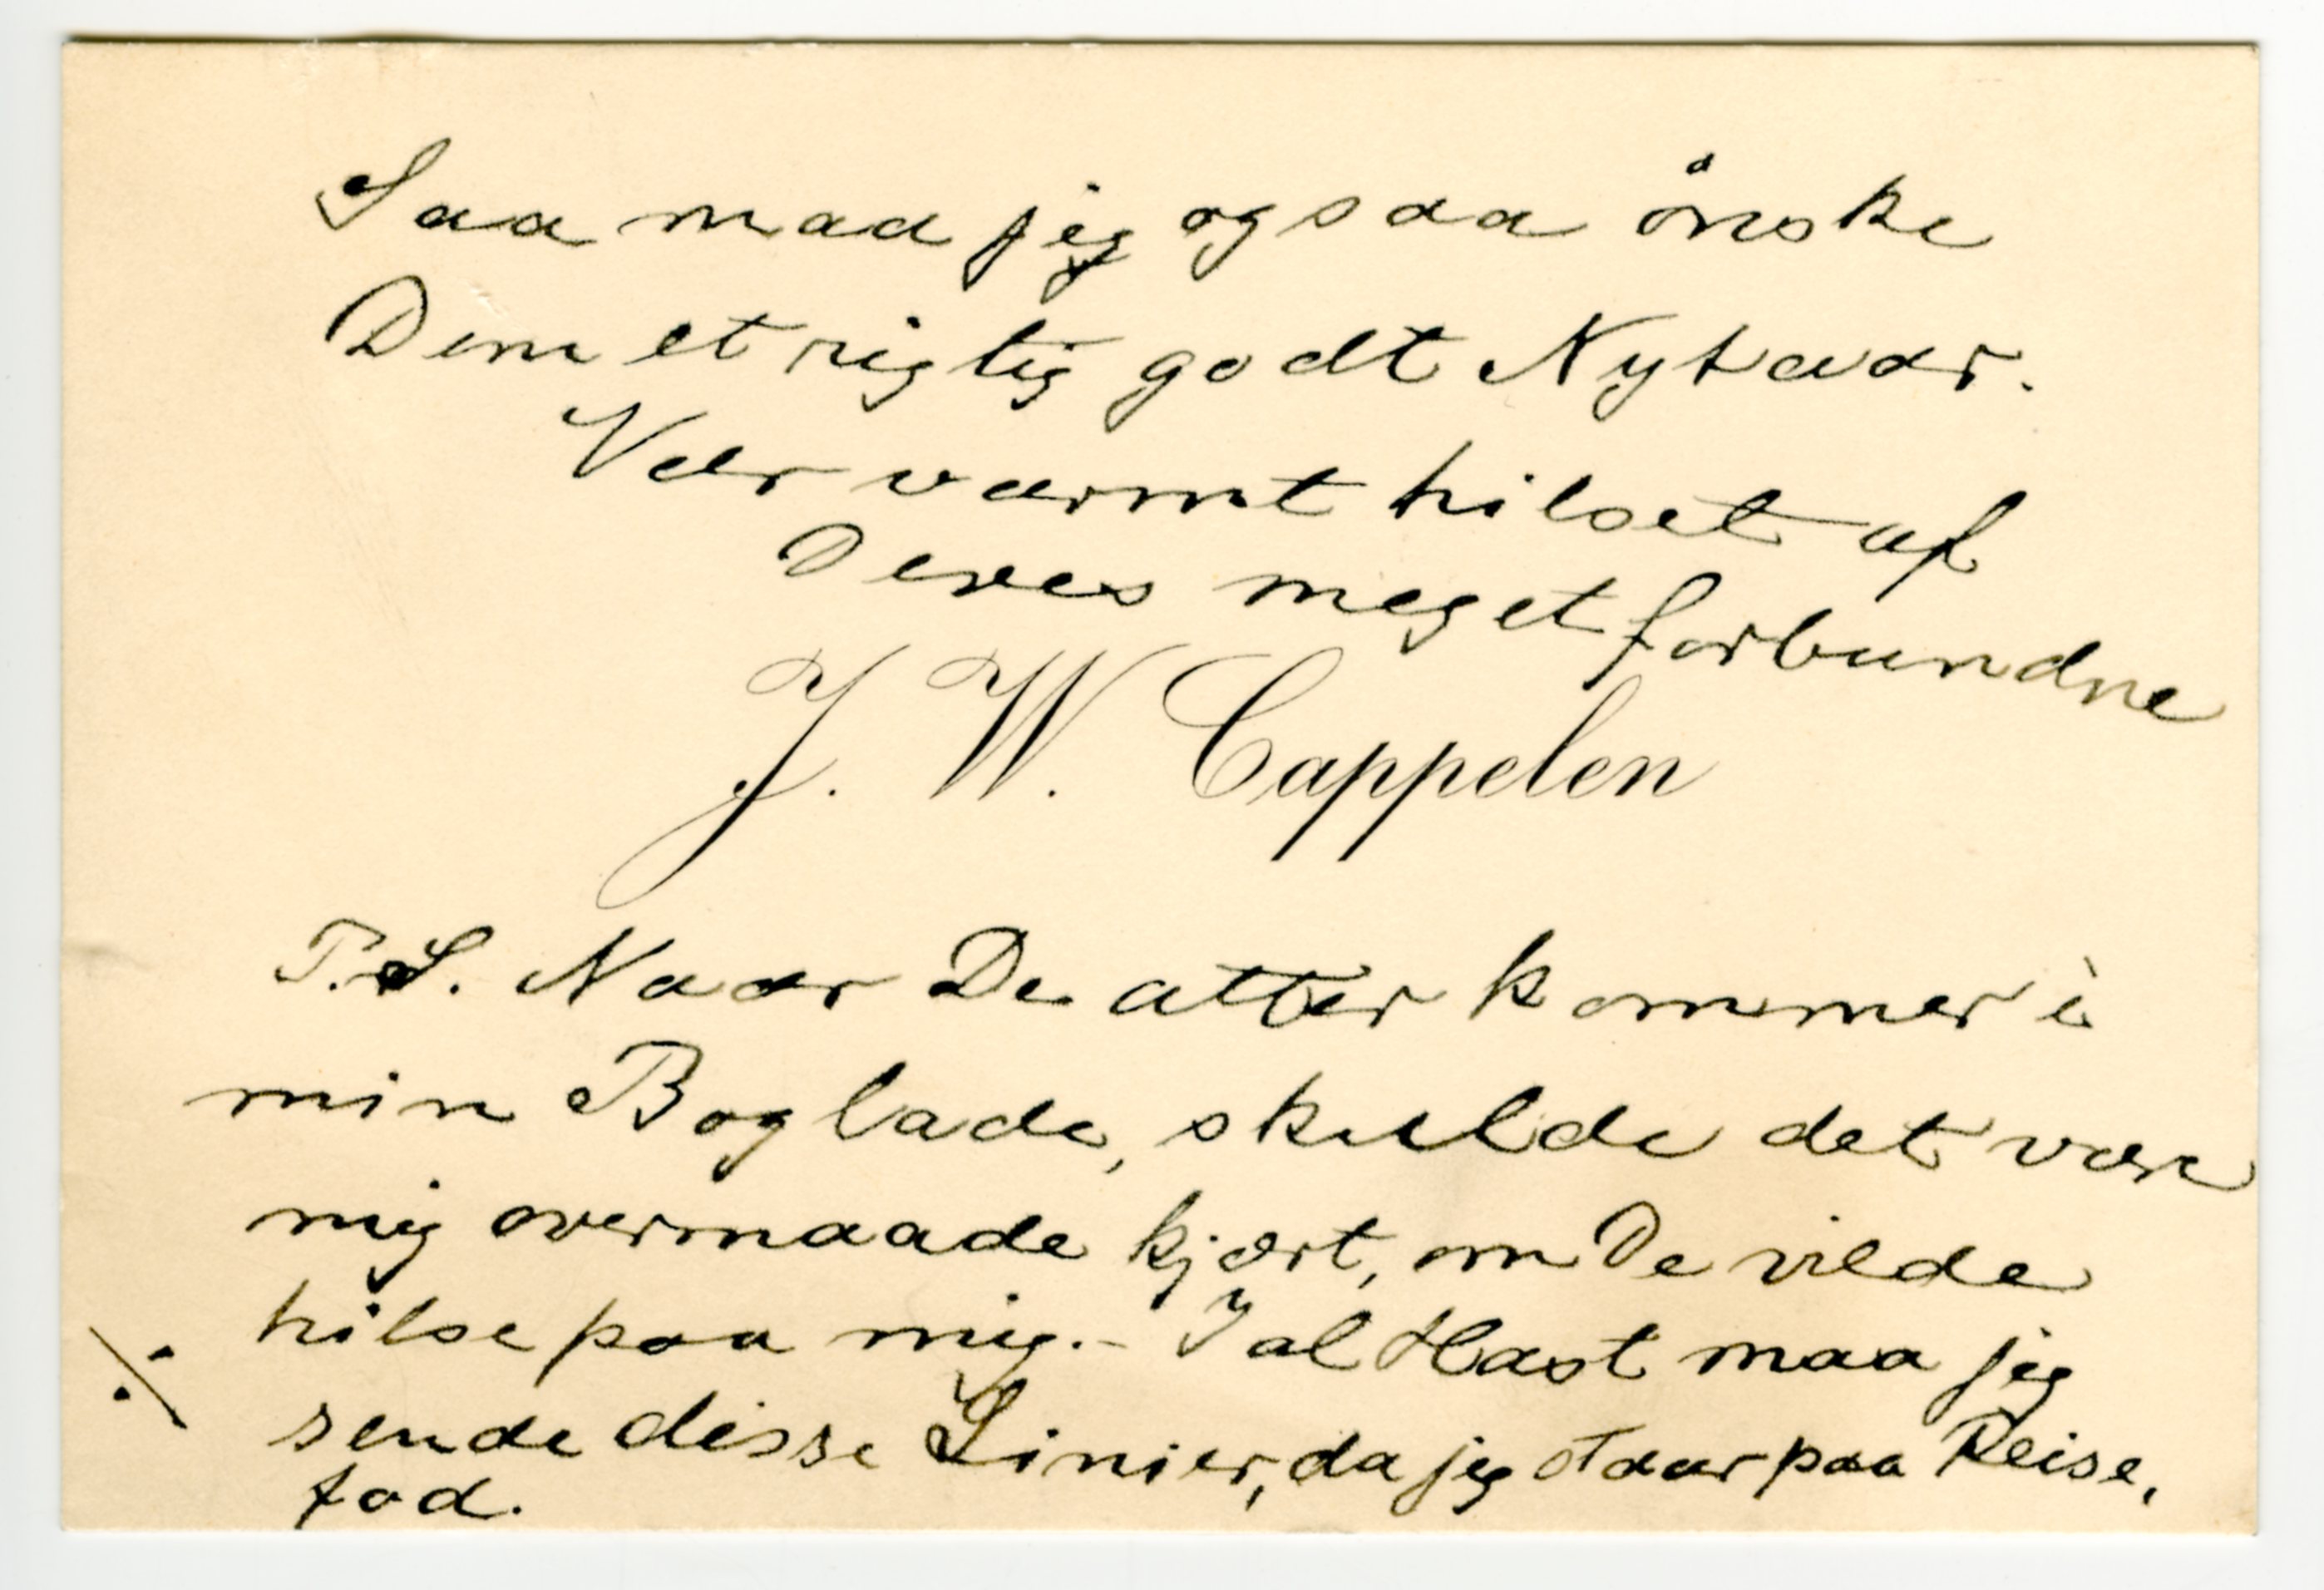 Saa maa jeg ogsaa ønske
Dem et rigtig godt Nytaar.
Vær varmt hilset af
Deres meget forbundne
J. W. Cappelen
P.S. Naar De atter kommer i
min Boglade, skulde det være
mig overmaade kjært, om De vilde
hilse paa mig. - I al Hast maa jeg
./. sende disse Linier, da jeg staar paa Reise,
fod.